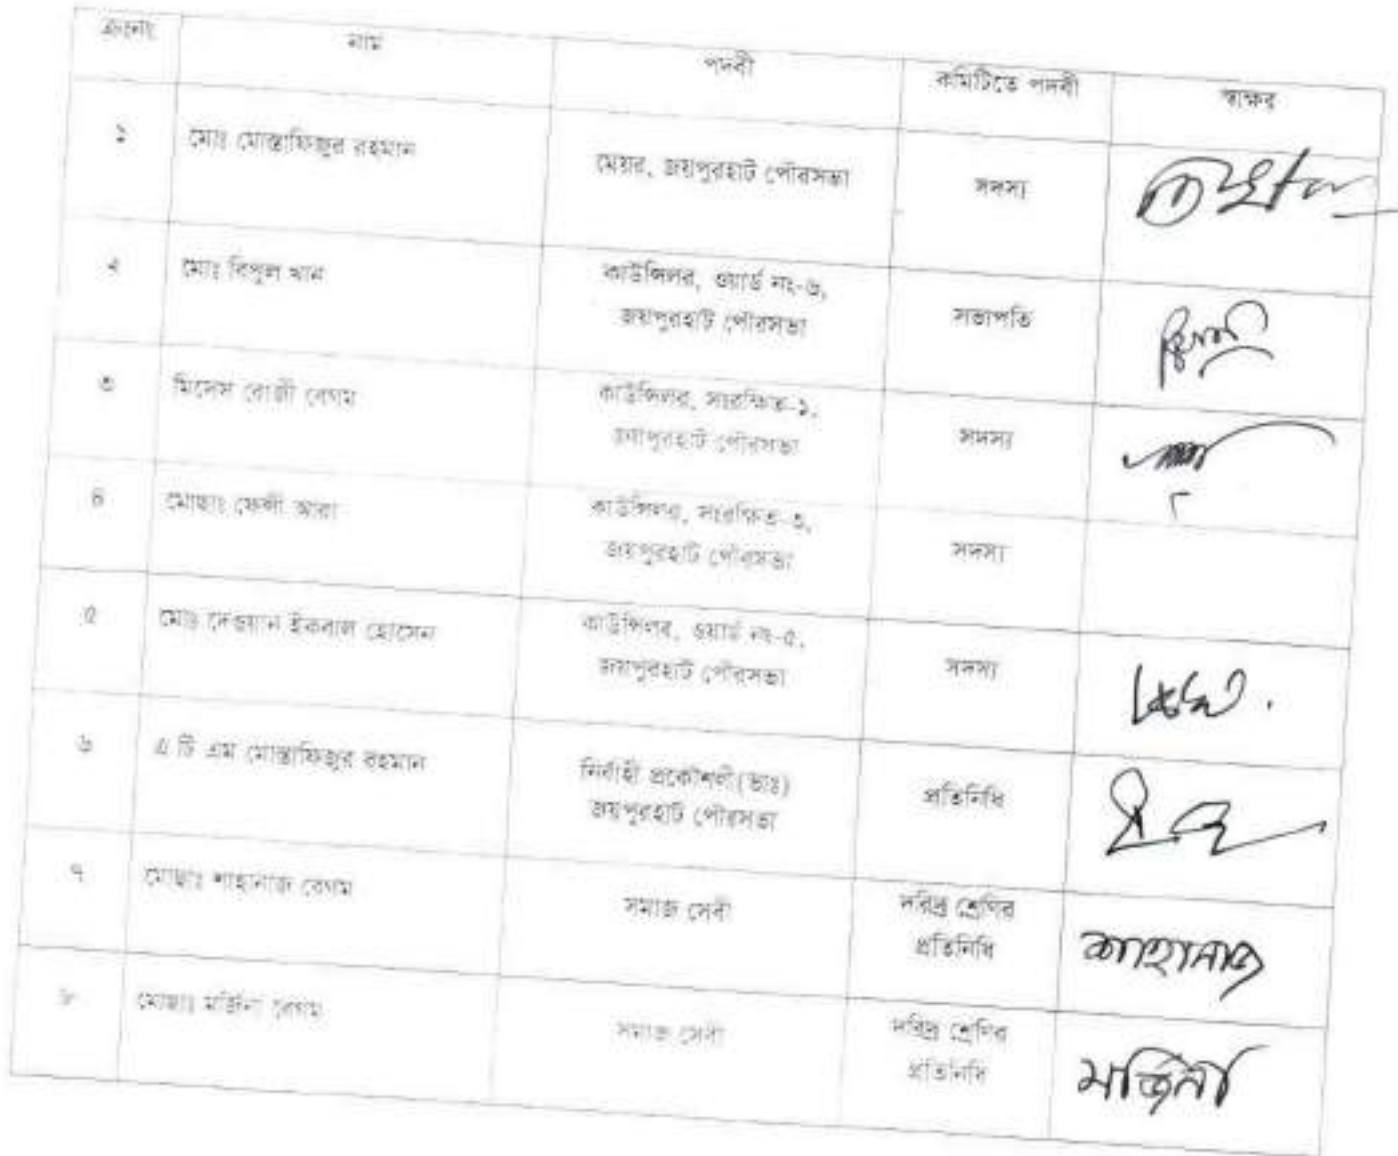 ক্রঃনাং নাম পদবী কমিটিতে পদবী স্বাক্ষর
১ মোঃ মোস্তাফিজুর রহমান মেয়র, জয়পুরহাট পৌরসভা সদস্য
২ মোঃ বিপুল খান কাউন্সিলর, ওয়ার্ড নং-৬, সভাপতি
জয়পুরহাট পৌরসভা
৩ মিসেস রোজী বেগম কাউন্সিলর, সংরক্ষিত-১, সদস্য
জয়পুরহাট পৌরসভা
৪ মোছাঃ ফেন্সী আরা কাউন্সিলর, সংরক্ষিত-৩, সদস্য
জয়পুরহাট পৌরসভা
৫ মোঃ দেওয়ান ইকবাল হোসেন কাউন্সিলর, ওয়ার্ড নং-৫, সদস্য
জয়পুরহাট পৌরসভা
৬ এ টি এম মোস্তাফিজুর রহমান নির্বাহী প্রকৌশলী(ভাঃ) প্রতিনিধি
জয়পুরহাট পৌরসভা
৭ মোছাঃ শাহানাজ বেগম সমাজ সেবী দরিদ্র শ্রেণির শাহানাজ
প্রতিনিধি
৮ মোছাঃ মর্জিনা বেগম সমাজ সেবী দরিদ্র শ্রেণির মর্জিনা
প্রতিনিধি